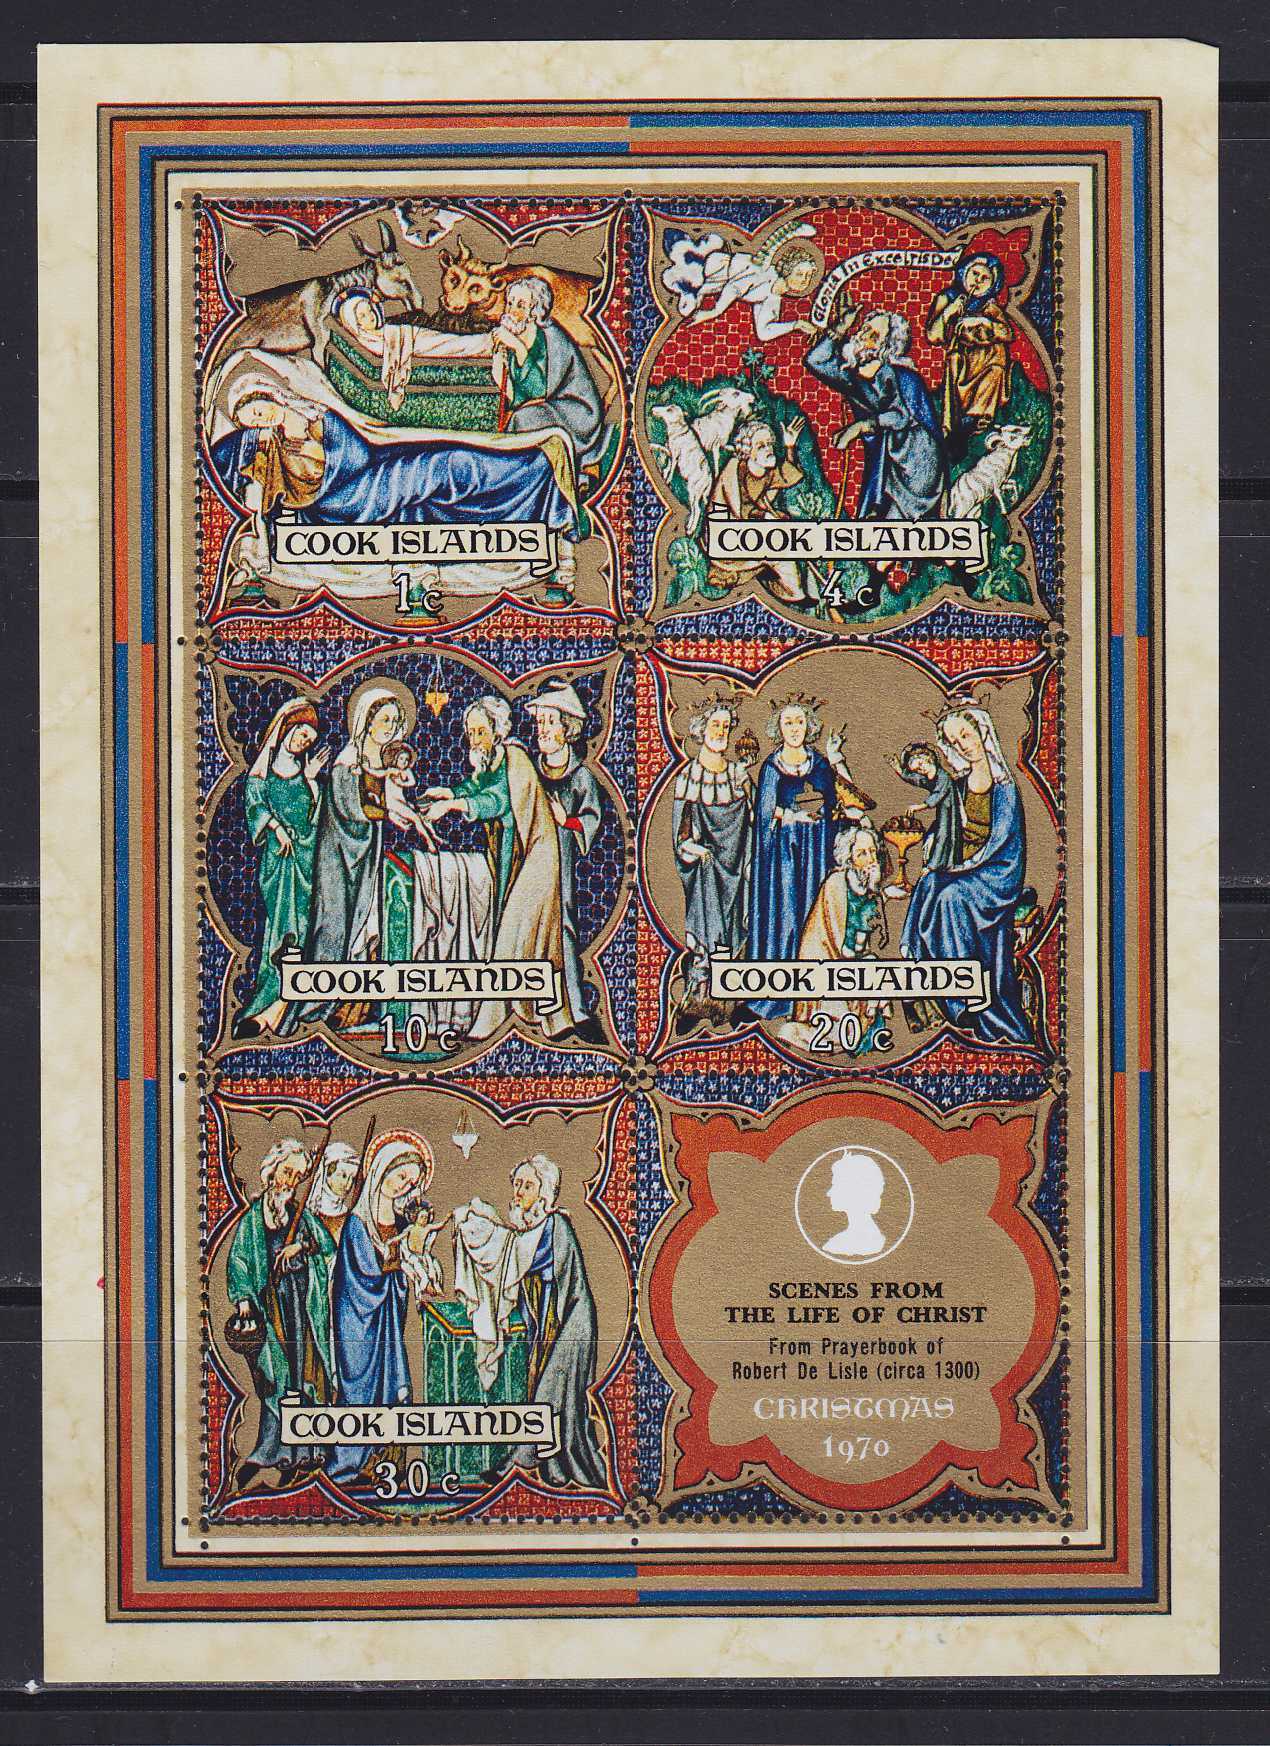 Gloria In Excelsis De
COOK ISLANDS
1c
COOK ISLANDS
4c
COOK ISLANDS
10c
COOK ISLANDS
20c
COOK ISLANDS
30c
SCENES FROM
THE LIFE OF CHRIST
From Prayerbook of
Robert De Lisle (circa 1300)
CHRISTMAS
1970